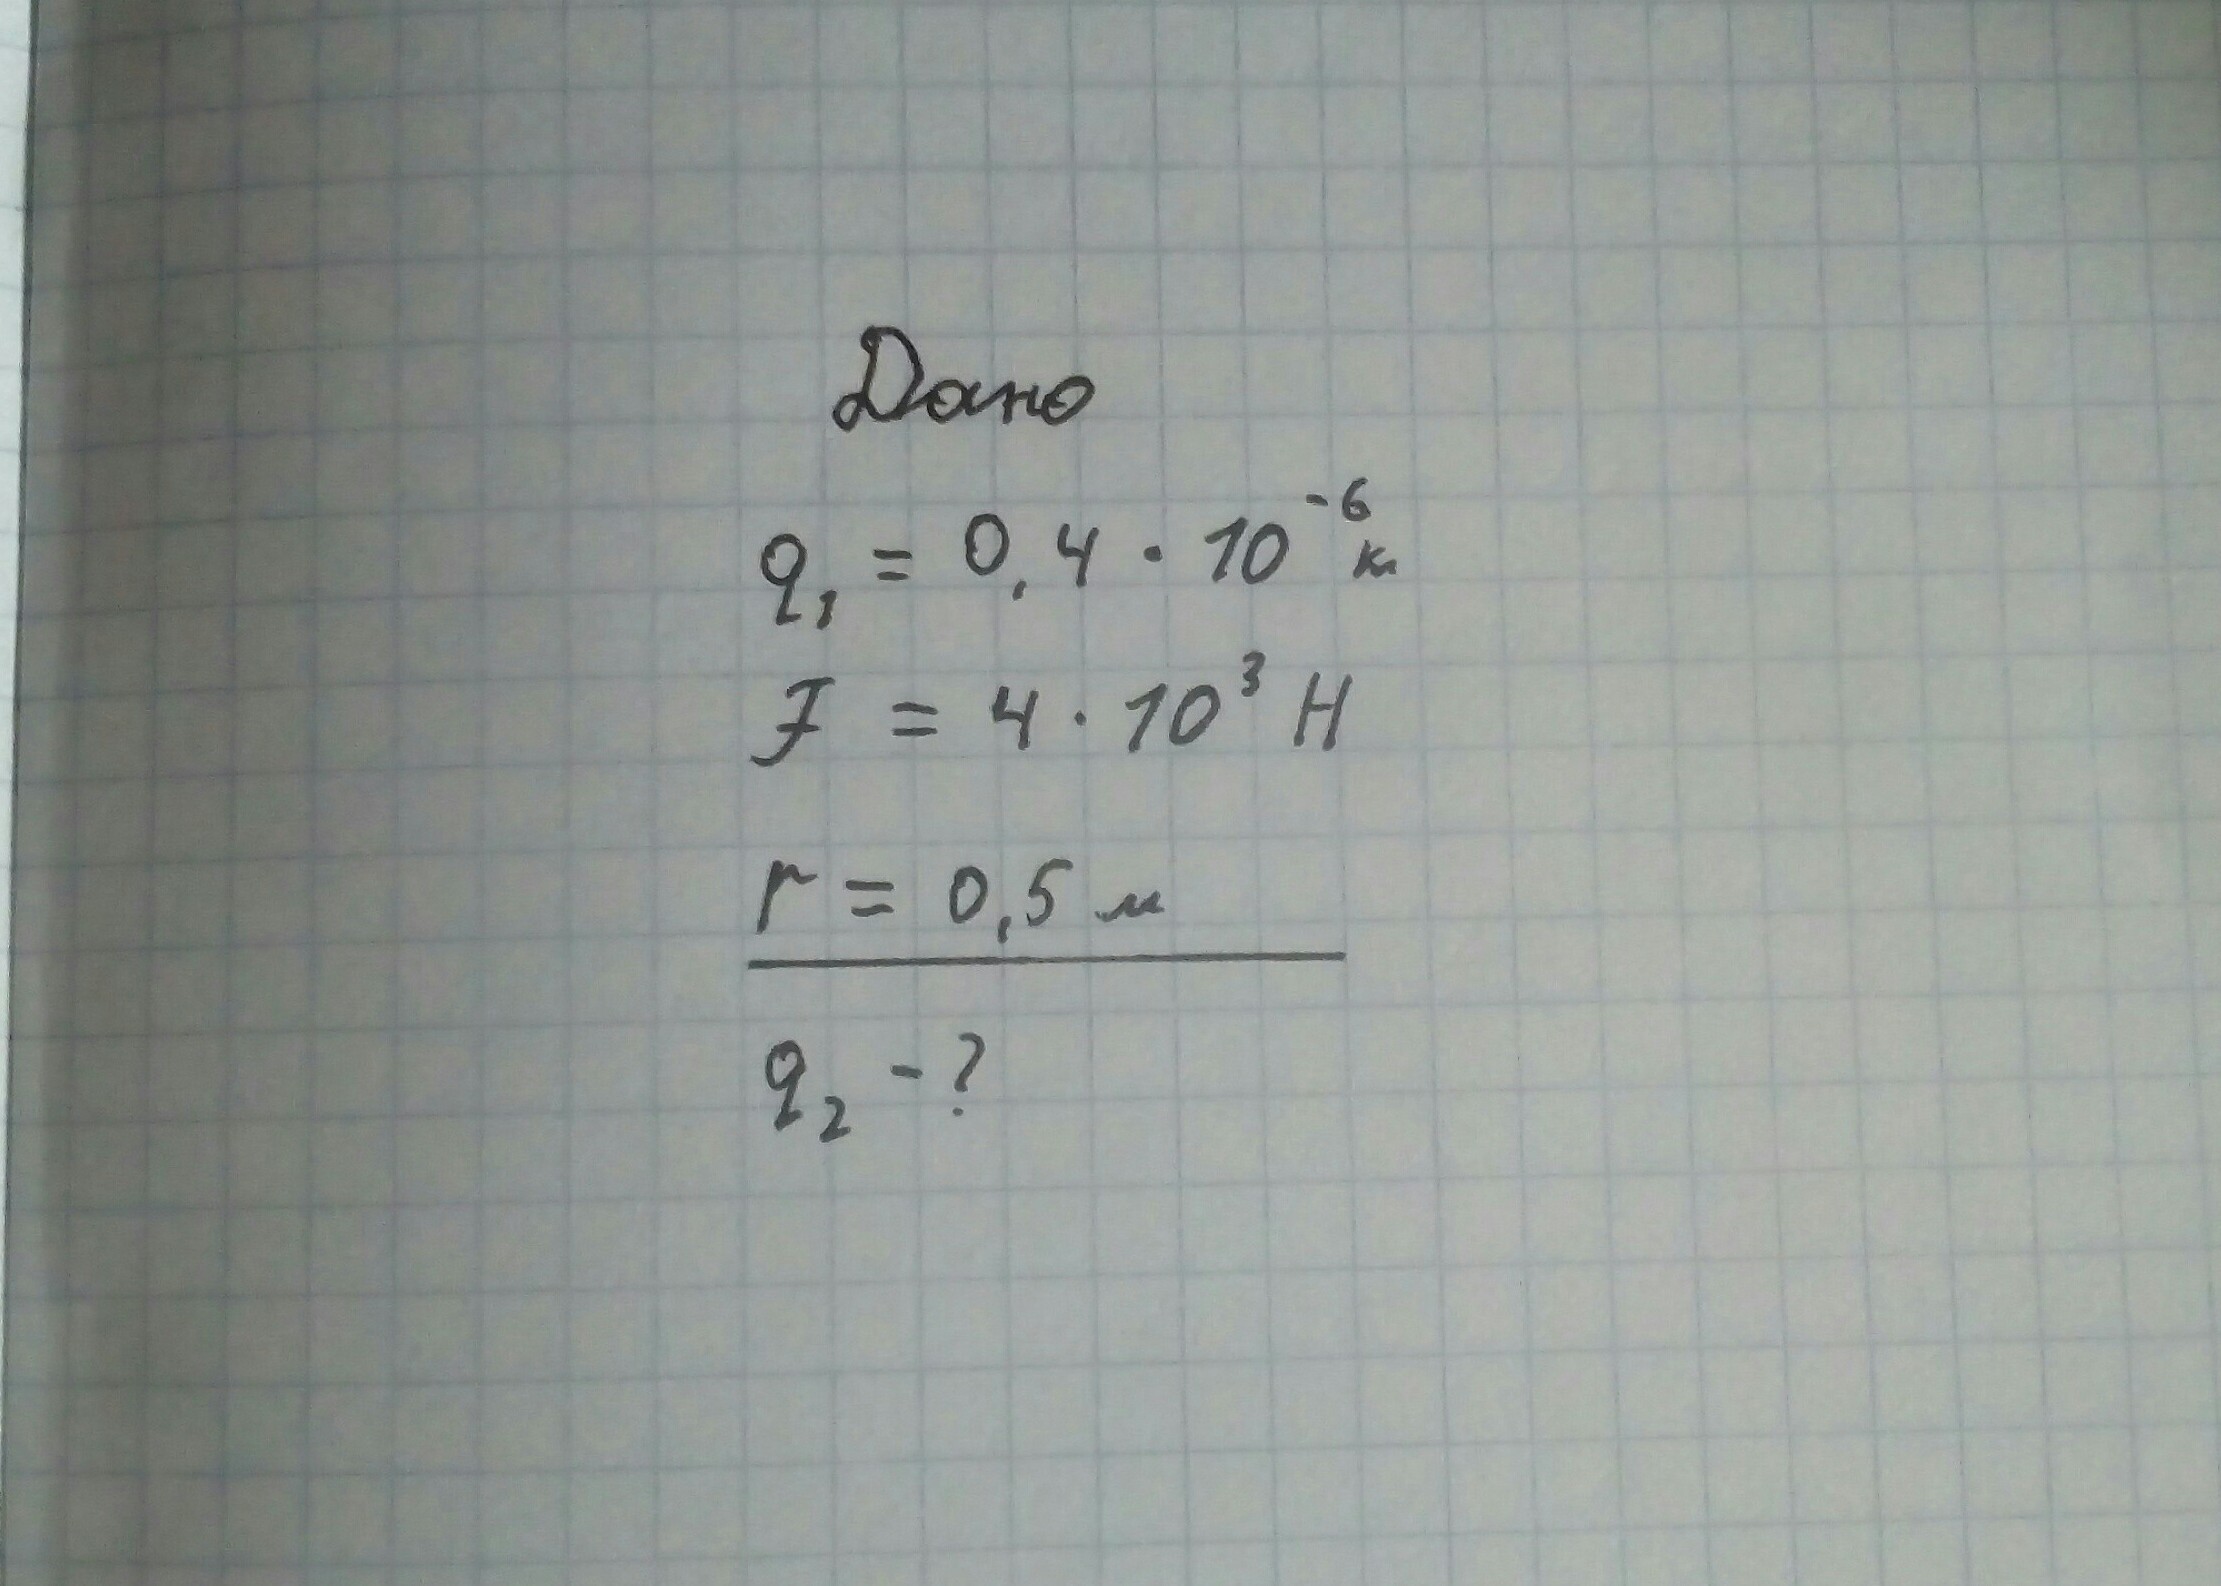 Дано
q₁ = 0,4 · 10⁻⁶ Кл
F = 4 · 10³ Н
r = 0,5 м
q₂ - ?